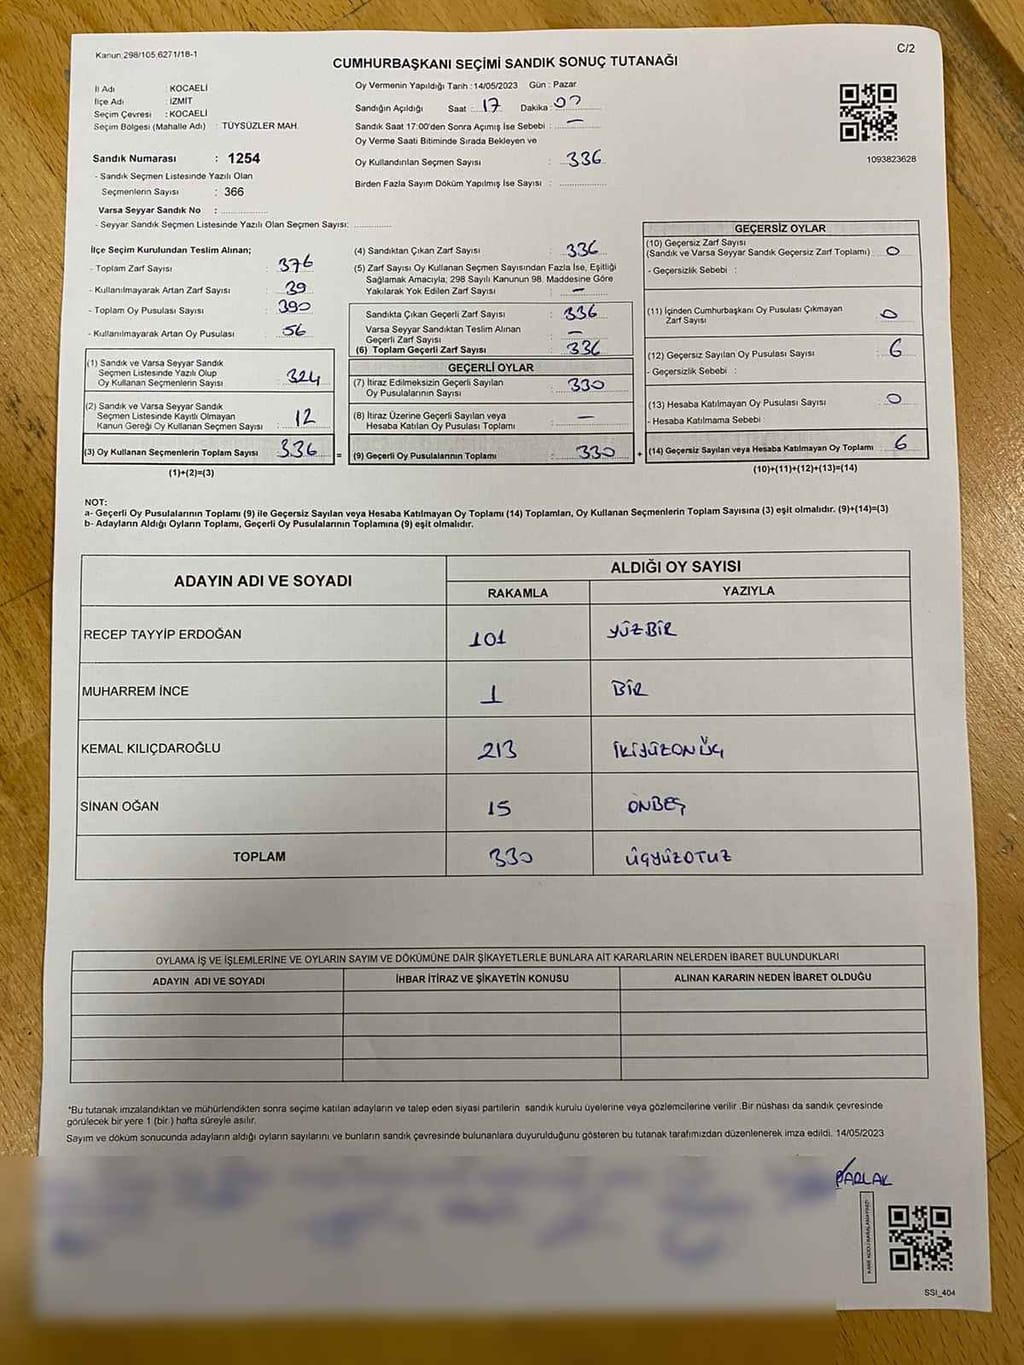 Kanun:298/105.6271/18-1
C/2
CUMHURBAŞKANI SEÇİMİ SANDIK SONUÇ TUTANAĞI
İl Adı : KOCAELİ
İlçe Adı : İZMİT
Seçim Çevresi : KOCAELİ
Seçim Bölgesi (Mahalle Adı) : TÜYSÜZLER MAH.
Sandık Numarası : 1254
- Sandık Seçmen Listesinde Yazılı Olan
Seçmenlerin Sayısı : 366
Varsa Seyyar Sandık No :
- Seyyar Sandık Seçmen Listesinde Yazılı Olan Seçmen Sayısı:
Oy Vermenin Yapıldığı Tarih :14/05/2023 Gün : Pazar
Sandığın Açıldığı Saat : 17 Dakika :00
Sandık Saat 17:00'den Sonra Açımış İse Sebebi : —
Oy Verme Saati Bitiminde Sırada Bekleyen ve
Oy Kullandırılan Seçmen Sayısı : 336
Birden Fazla Sayım Döküm Yapılmış İse Sayısı :
1093823628
İlçe Seçim Kurulundan Teslim Alınan;
- Toplam Zarf Sayısı : 376
- Kullanılmayarak Artan Zarf Sayısı : 39
- Toplam Oy Pusulası Sayısı : 390
- Kullanılmayarak Artan Oy Pusulası : 56
(1) Sandık ve Varsa Seyyar Sandık
Seçmen Listesinde Yazılı Olup
Oy Kullanan Seçmenlerin Sayısı : 324
(2) Sandık ve Varsa Seyyar Sandık
Seçmen Listesinde Kayıtlı Olmayan
Kanun Gereği Oy Kullanan Seçmen Sayısı : 12
(3) Oy Kullanan Seçmenlerin Toplam Sayısı : 336 =
(1)+(2)=(3)
(4) Sandıktan Çıkan Zarf Sayısı : 336
(5) Zarf Sayısı Oy Kullanan Seçmen Sayısından Fazla İse, Eşitliği
Sağlamak Amacıyla; 298 Sayılı Kanunun 98. Maddesine Göre
Yakılarak Yok Edilen Zarf Sayısı : —
Sandıkta Çıkan Geçerli Zarf Sayısı : 336
Varsa Seyyar Sandıktan Teslim Alınan
Geçerli Zarf Sayısı : —
(6) Toplam Geçerli Zarf Sayısı : 336
GEÇERLİ OYLAR
(7) İtiraz Edilmeksizin Geçerli Sayılan
Oy Pusulalarının Sayısı : 330
(8) İtiraz Üzerine Geçerli Sayılan veya
Hesaba Katılan Oy Pusulası Toplamı : —
(9) Geçerli Oy Pusulalarının Toplamı : 330 +
GEÇERSİZ OYLAR
(10) Geçersiz Zarf Sayısı
(Sandık ve Varsa Seyyar Sandık Geçersiz Zarf Toplamı) : 0
- Geçersizlik Sebebi :
(11) İçinden Cumhurbaşkanı Oy Pusulası Çıkmayan
Zarf Sayısı : 0
(12) Geçersiz Sayılan Oy Pusulası Sayısı : 6
- Geçersizlik Sebebi :
(13) Hesaba Katılmayan Oy Pusulası Sayısı : 0
- Hesaba Katılmama Sebebi
(14) Geçersiz Sayılan veya Hesaba Katılmayan Oy Toplamı : 6
(10)+(11)+(12)+(13)=(14)
NOT:
a- Geçerli Oy Pusulalarının Toplamı (9) ile Geçersiz Sayılan veya Hesaba Katılmayan Oy Toplamı (14) Toplamları, Oy Kullanan Seçmenlerin Toplam Sayısına (3) eşit olmalıdır. (9)+(14)=(3)
b- Adayların Aldığı Oyların Toplamı, Geçerli Oy Pusulalarının Toplamına (9) eşit olmalıdır.
ADAYIN ADI VE SOYADI
ALDIĞI OY SAYISI
RAKAMLA YAZIYLA
RECEP TAYYİP ERDOĞAN 101 YÜZBİR
MUHARREM İNCE 1 BİR
KEMAL KILIÇDAROĞLU 213 İKİYÜZONÜÇ
SİNAN OĞAN 15 ONBEŞ
TOPLAM 330 ÜÇYÜZOTUZ
OYLAMA İŞ VE İŞLEMLERİNE VE OYLARIN SAYIM VE DÖKÜMÜNE DAİR ŞİKAYETLERLE BUNLARA AİT KARARLARIN NELERDEN İBARET BULUNDUKLARI
ADAYIN ADI VE SOYADI İHBAR İTİRAZ VE ŞİKAYETİN KONUSU ALINAN KARARIN NEDEN İBARET OLDUĞU
*Bu tutanak imzalandıktan ve mühürlendikten sonra seçime katılan adayların ve talep eden siyasi partilerin sandık kurulu üyelerine veya gözlemcilerine verilir .Bir nüshası da sandık çevresinde
görülecek bir yere 1 (bir ) hafta süreyle asılır.
Sayım ve döküm sonucunda adayların aldığı oyların sayılarını ve bunların sandık çevresinde bulunanlara duyurulduğunu gösteren bu tutanak tarafımızdan düzenlenerek imza edildi. 14/05/2023
PARLAK
SSI_404